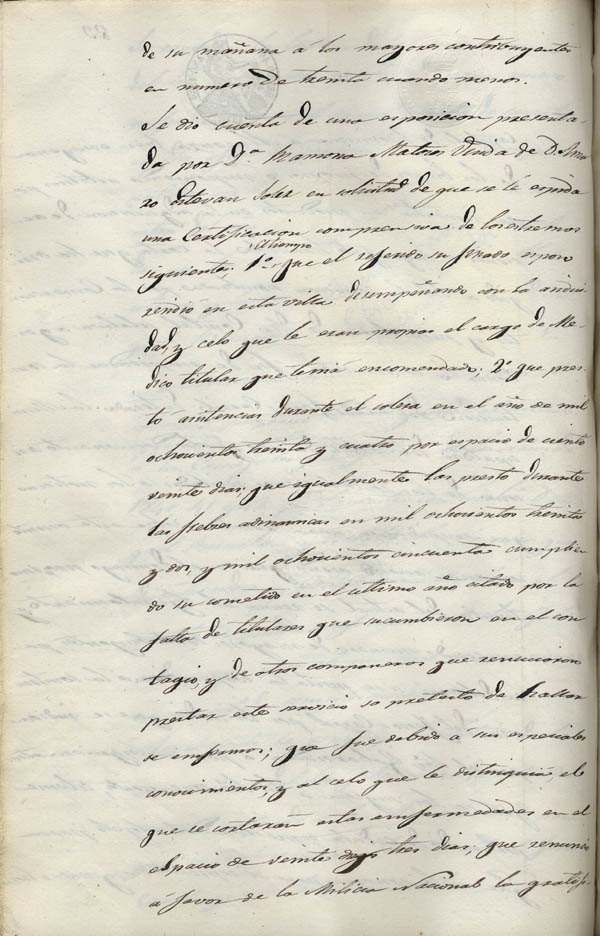 de su mañana á los mayores contribuyentes
en numero de treinta cuando menos.
Se dio cuenta de una esposicion presenta-
da por Dª Ramona Matres Viuda de D.
ro Estevan Soler en solicitud de que se le espida
una Certificacion comprensiva de los estremos
siguientes. 1º que el
tiempo
referido su finado espon
rendió en esta villa desempeñando con la
dad, y celo que le eran propios el cargo de Me-
dico titular que tenia encomendado; 2º que pres-
tó asistencias durante el colera en el año de mil
ochocientos treinta y cuatro por espacio de ciento
veinte dias; que igualmente las presto durante
las fiebres adinamicas en mil ochocientos treinta
y dos, y mil ochocientos cincuenta cumplien-
do su cometido en el ultimo año citado por la
falta de titulares que sucumbieron en el con
tagio, y de otros compañeros que renunciaron
prestar este servicio so pretesto de hallar
se enfermos; que fue debido á sus especiales
conocimientos, y al celo que le distinguia, el
que se cortaran estas enfermedades en el
espacio de veinte tres dias; que renunció
á favor de la Milicia Nacional la gratifi-